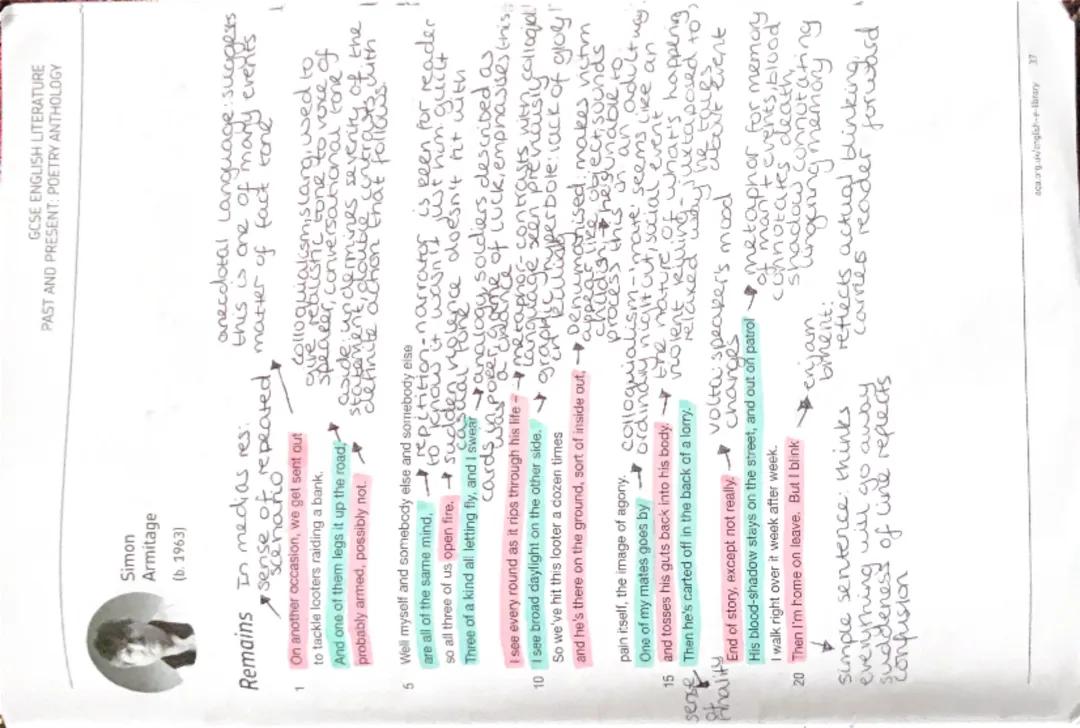 GCSE ENGLISH LITERATURE
PAST AND PRESENT: POETRY ANTHOLOGY
Simon
Armitage
(b. 1963)
Remains
In medias res:
sense of repeated
scenario
anecdotal language: suggests
this is one of many events
matter of fact tone
1 On another occasion, we get sent out
to tackle looters raiding a bank.
And one of them legs it up the road,
probably armed, possibly not.
colloquialism slang, used to
give realistic tone to voice of
speaker, conversational tone of
severity of the
statement
definite action that follows
5 Well myself and somebody else and somebody else
are all of the same mind,
so all three of us open fire.
Three of a kind all letting fly, and I swear
repetition-narrator is keen for reader
to know it wasn't just him, guilt
sudden violence doesn't fit with
casual tone
analogy, soldiers described as
cards
game of luck, emphasises this
was a chance
I see every round as it rips through his life –
10 I see broad daylight on the other side.
So we've hit this looter a dozen times
and he's there on the ground, sort of inside out,
metaphor-contrasts with colloquial
language seen previously
graphic hyperbole: lack of glory
dehumanised: makes victim
appear like object, sounds
childish
unable to
process this in an adult way
pain itself, the image of agony.
One of my mates goes by
15 and tosses his guts back into his body.
Then he's carted off in the back of a lorry.
colloquialism-'mate': seems like an
ordinary night out, social event
the nature of what's happening
violent killing-juxtaposed to
relaxed way he talks
about event
End of story, except not really.
His blood-shadow stays on the street, and out on patrol
I walk right over it week after week.
20 Then I'm home on leave. But I blink
sense
volta: speaker's mood
changes
metaphor for memory
of events, blood
connotates death,
shadow connotating
lingering memory
enjambment:
reflects actual blinking,
carries reader forward
simple sentence: thinks
everything will go away
suddeness of line reflects
confusion
aqa.org.uk/english-e-library 37